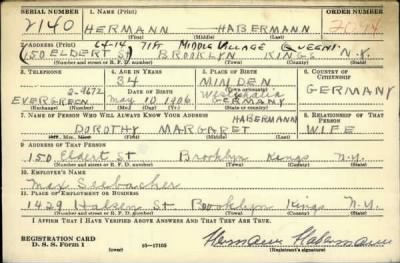 SERIAL NUMBER 1. NAME (Print) ORDER NUMBER
2140 HERMANN HABERMANN 7094
(First) (Middle) (Last)
2. ADDRESS (Print) 64-14 71st MIDDLE VILLAGE QUEENS
150 ELDERT ST BROOKLYN KINGS N.Y.
(Number and street or R. F. D. number) (Town) (County) (State)
3. TELEPHONE 4. AGE IN YEARS 5. PLACE OF BIRTH 6. COUNTRY OF CITIZENSHIP
2-9672 34 MINDEN
DATE OF BIRTH Westphalia GERMANY
EVERGREEN May 10 1906 GERMANY
(Exchange) (Number) (Mo.) (Day) (Yr.) (State or country)
7. NAME OF PERSON WHO WILL ALWAYS KNOW YOUR ADDRESS HABERMANN 8. RELATIONSHIP OF THAT PERSON
DOROTHY MARGARET WIFE
(Mr., Mrs., Miss) (First) (Middle) (Last)
9. ADDRESS OF THAT PERSON
150 Eldert St Brooklyn Kings N.Y.
(Number and street or R. F. D. number) (Town) (County) (State)
10. EMPLOYER'S NAME
Max Seebacher
11. PLACE OF EMPLOYMENT OR BUSINESS
1429 Halsey St Brooklyn Kings N.Y.
(Number and street or R. F. D. number) (Town) (County) (State)
I AFFIRM THAT I HAVE VERIFIED ABOVE ANSWERS AND THAT THEY ARE TRUE.
REGISTRATION CARD
D. S. S. Form 1 (over) 16—17105 Hermann Habermann
(Registrant's signature)